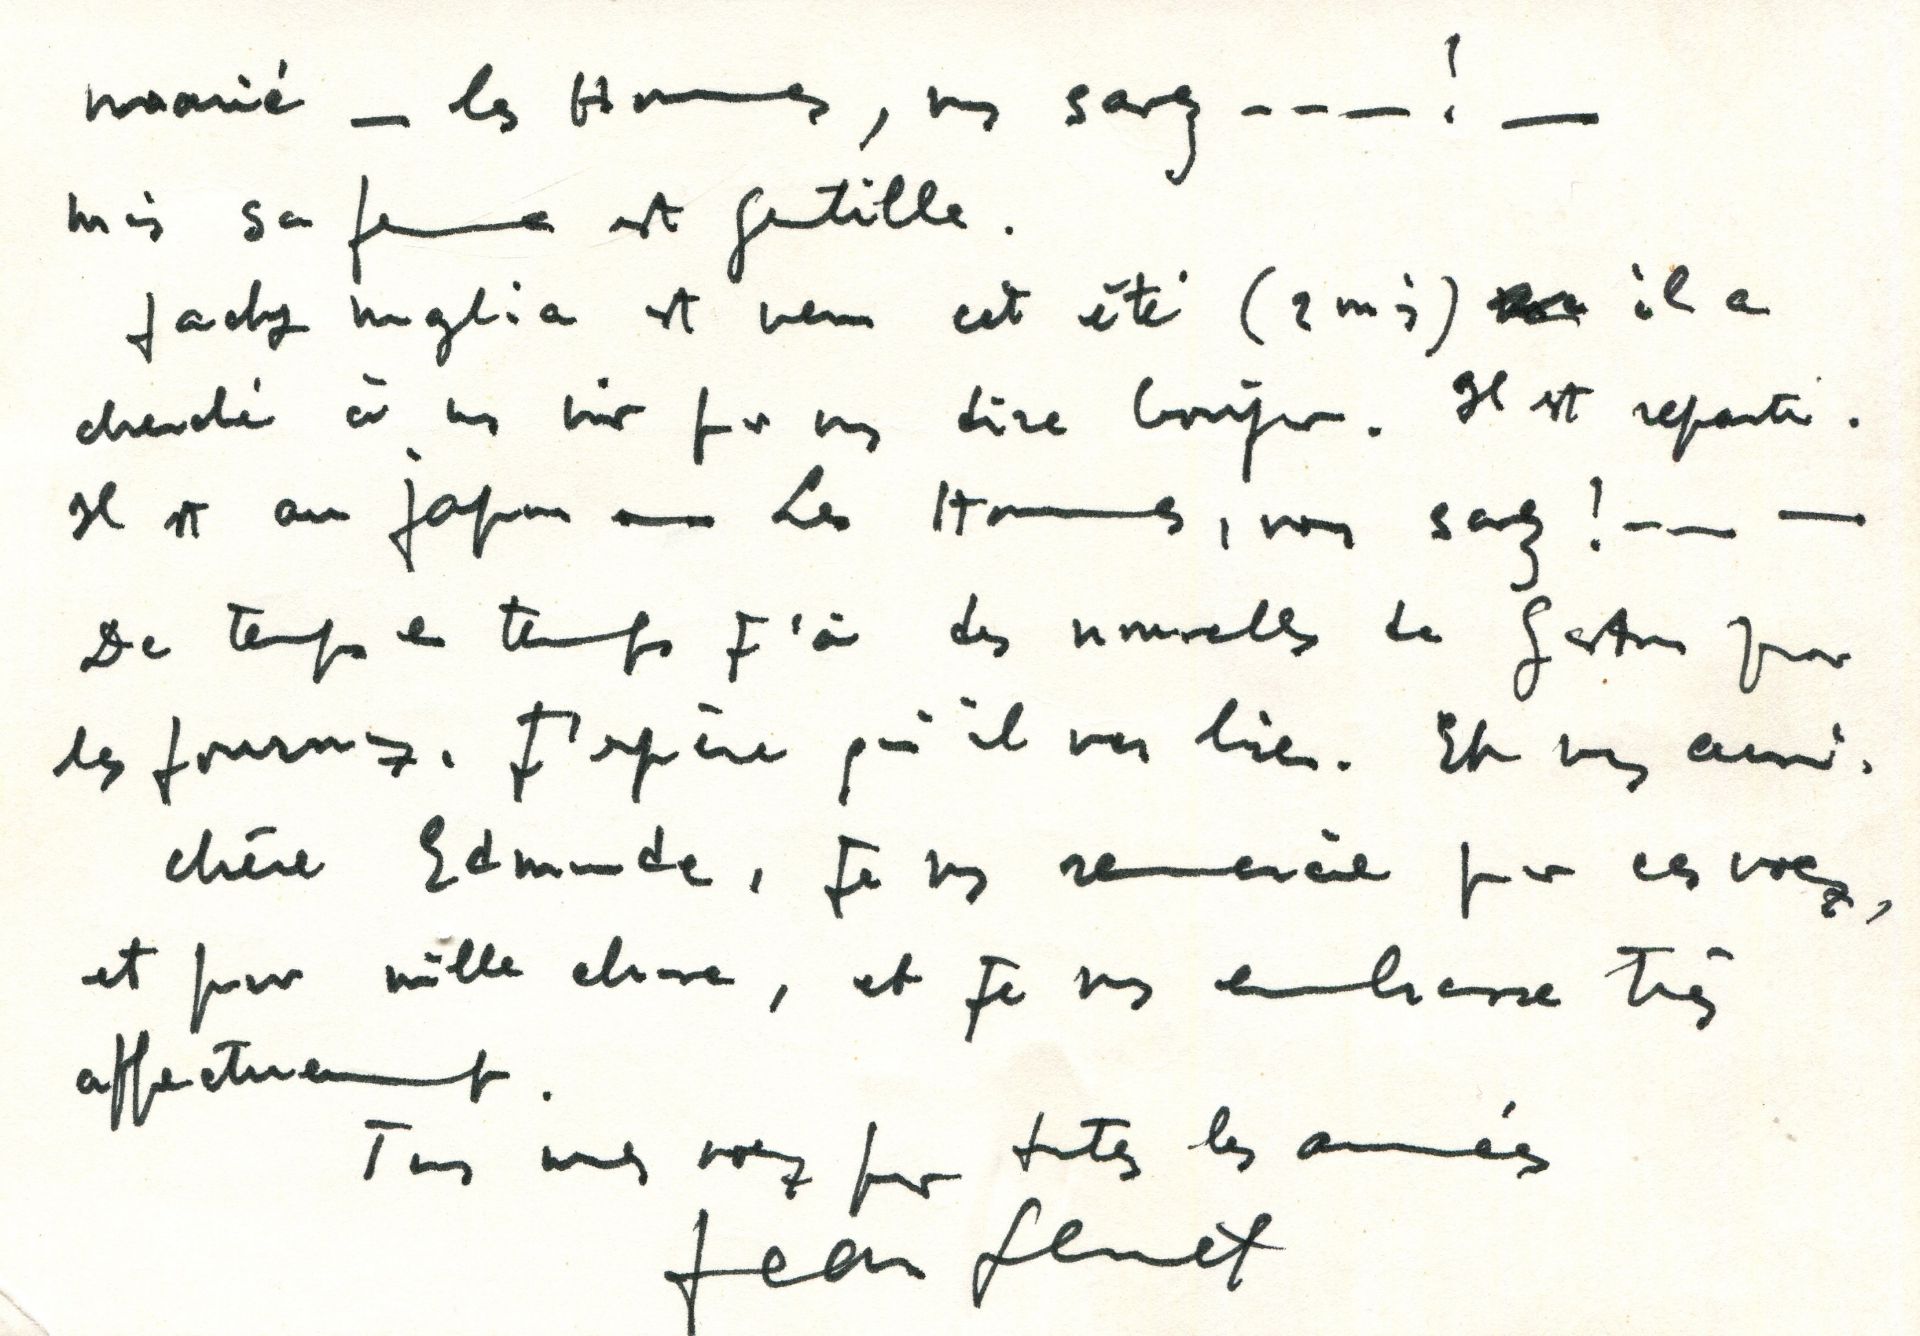 marié — les Hommes, vous savez - - - — ! —
mais sa femme est gentille.
Jacky Maglia est venu cet été (2 mois) il a
cherché à vous voir pour vous dire bonjour. Il est reparti.
Il est au Japon — Les Hommes, vous savez ! - — —
De temps en temps J'ai des nouvelles de Gaston par
les journaux. J'espère qu'il va bien. Et vous aussi.
chère Edmonde, Je vous remercie pour ces voeux,
et pour mille chose, et Je vous embrasse très
affectueusement.
Tous mes voeux pour toutes les années
Jean Genet